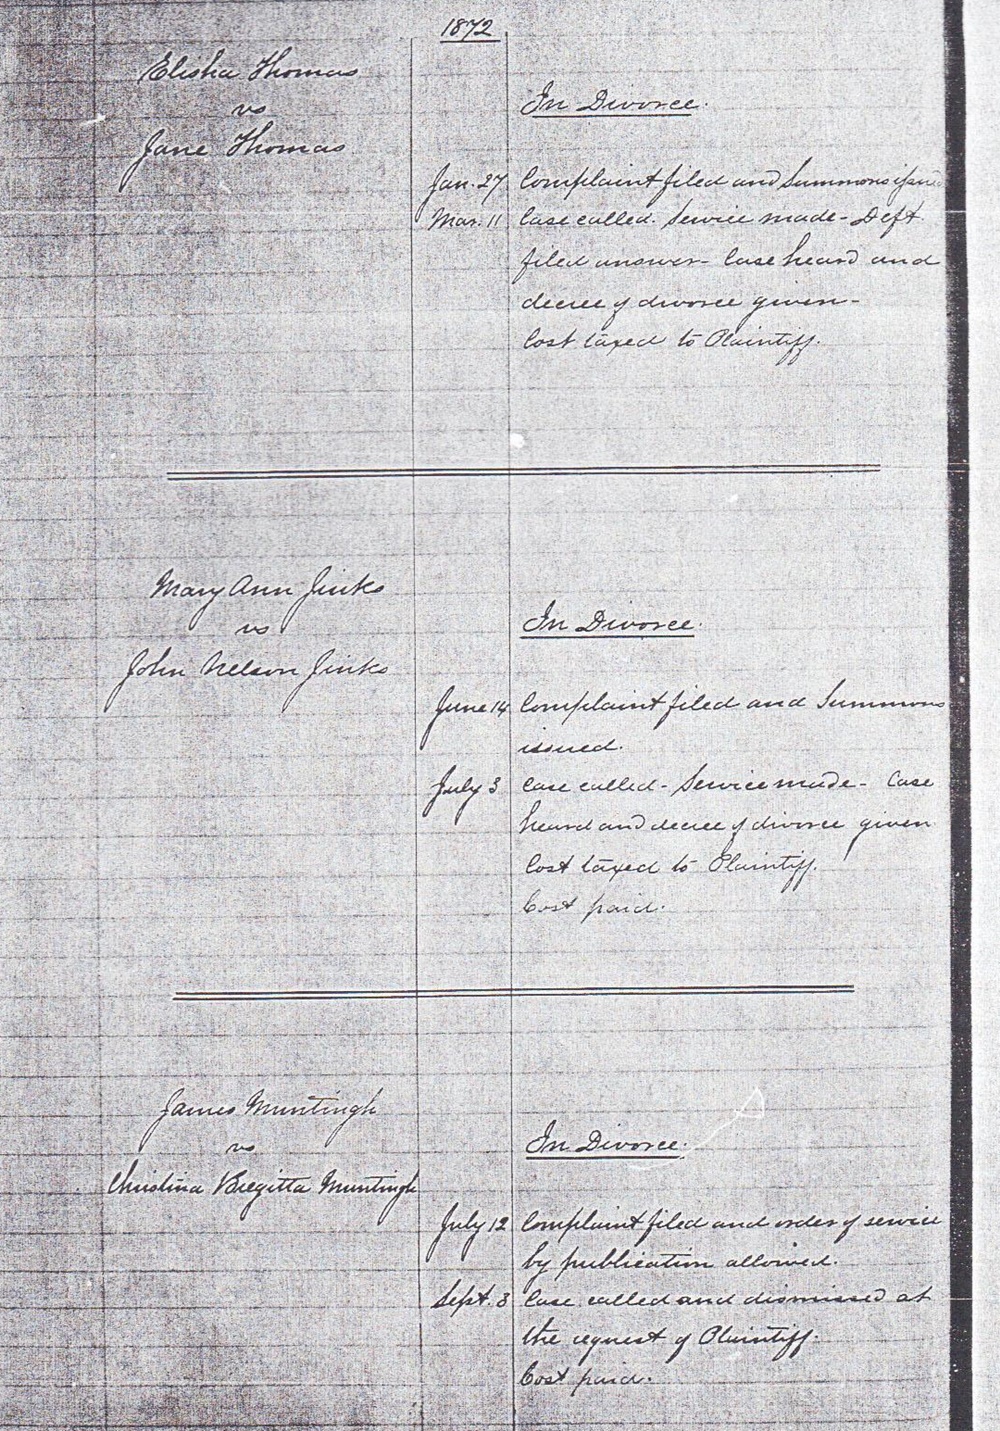 1872
Elisha Thomas
vs
Jane Thomas
In Divorce.
Jan. 27 Complaint filed and Summons issued
Mar. 11 Case called. Service made - Deft
filed answer - Case heard and
decree of divorce given -
Cost taxed to Plaintiff.
Mary Ann Jinks
vs
John Nelson Jinks
In Divorce.
June 14 Complaint filed and Summons
issued.
July 3 Case called - Service made - Case
heard and decree of divorce given
Cost taxed to Plaintiff.
Cost paid.
James Muntingh
vs
Christina Bregitta Muntingh
In Divorce.
July 12 Complaint filed and order of service
by publication allowed.
Sept. 3 Case called and dismissed at
the request of Plaintiff.
Cost paid.